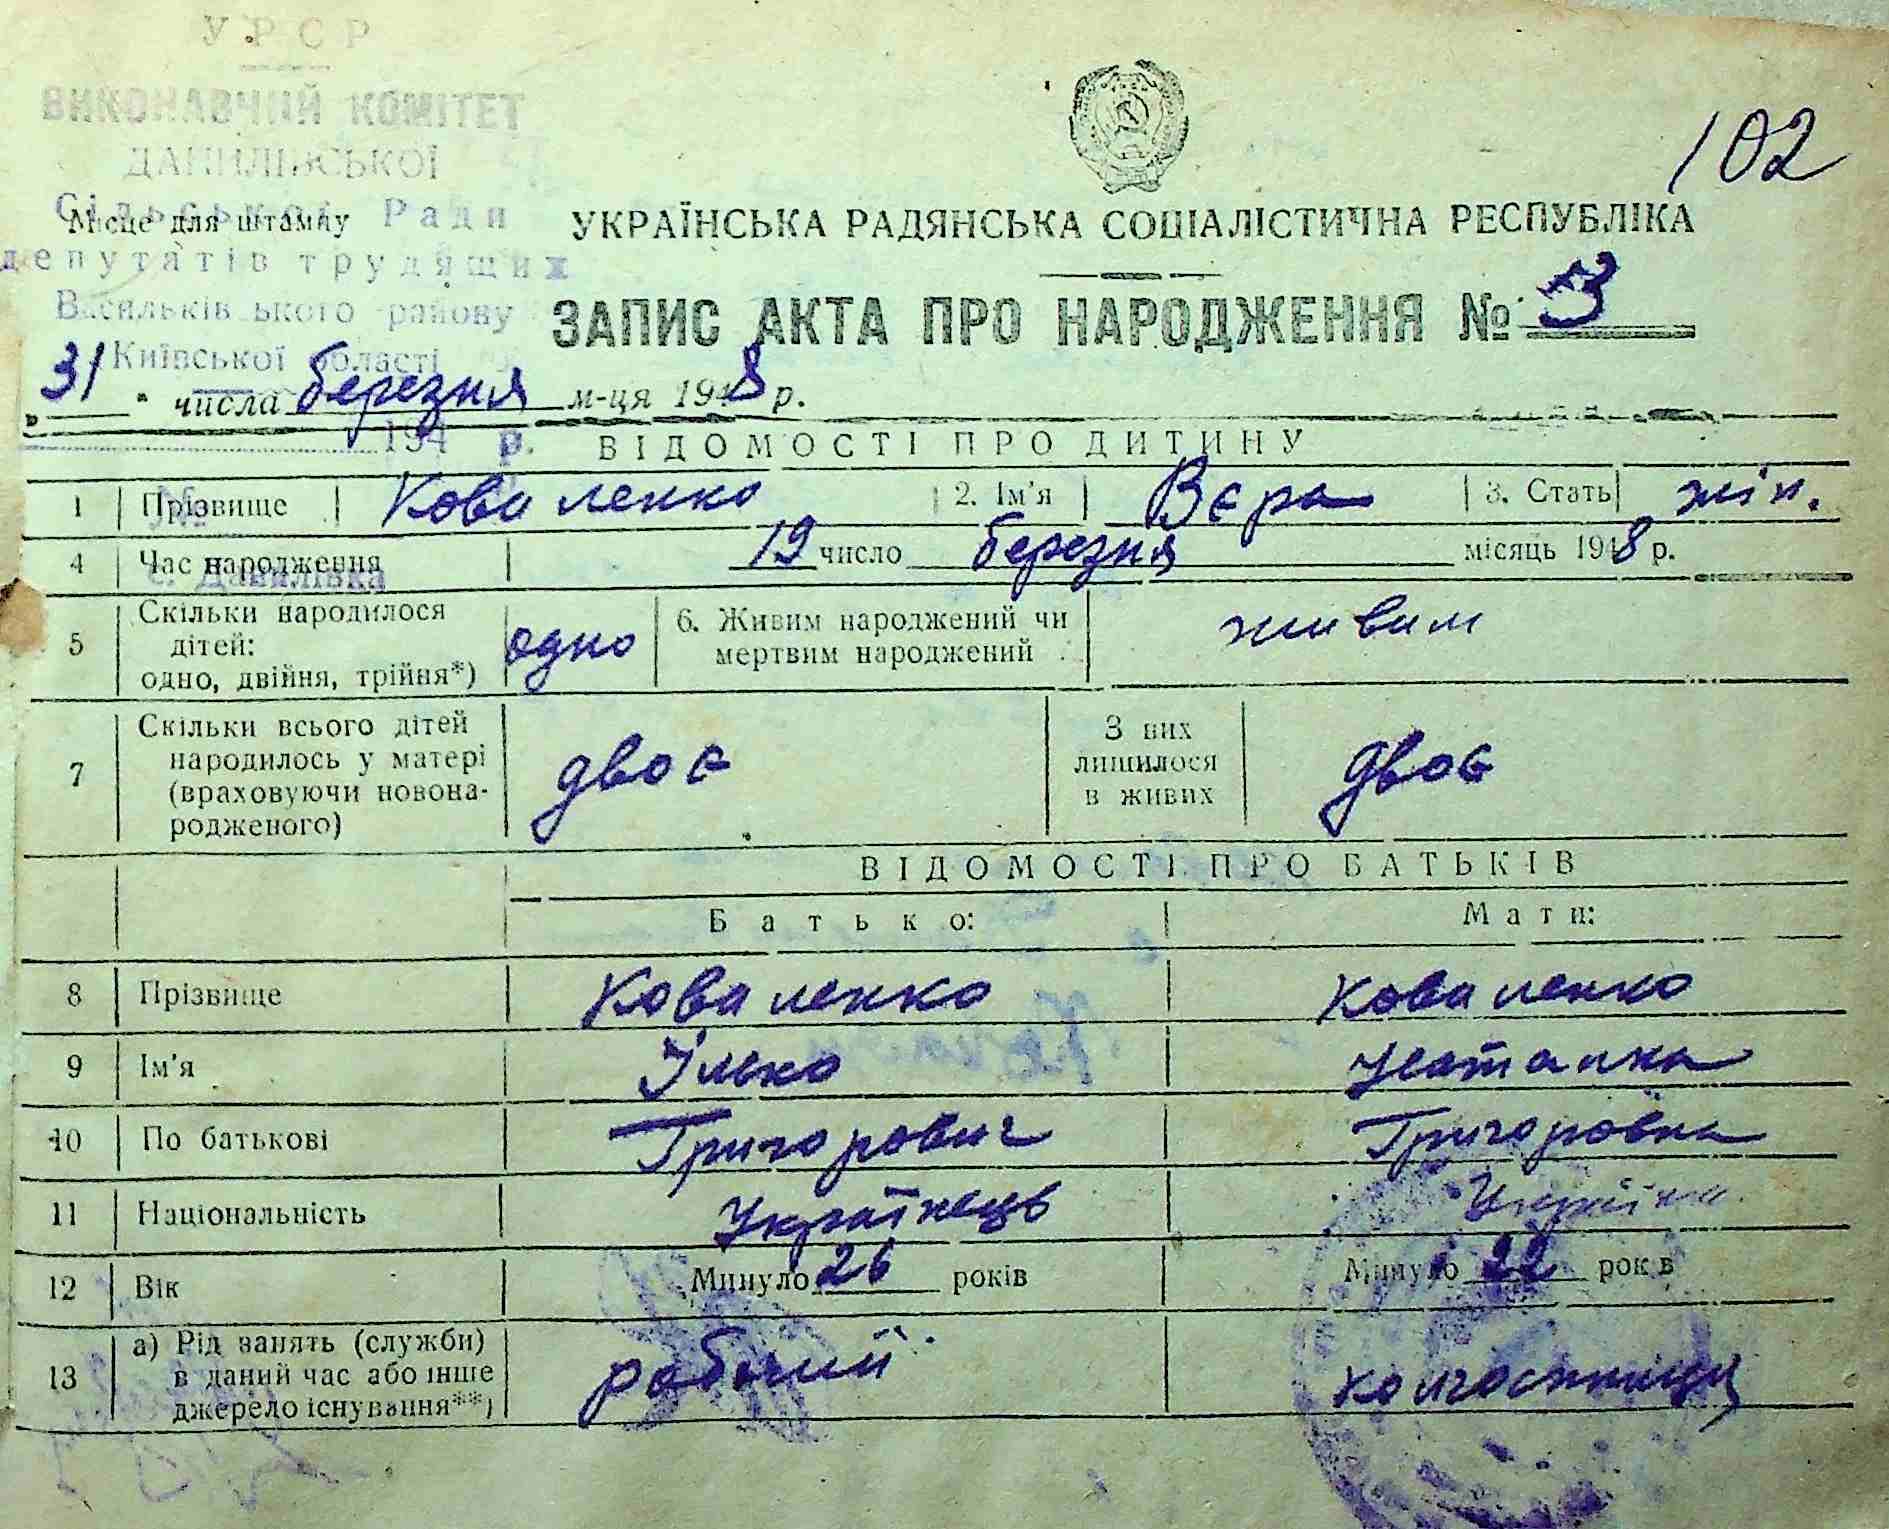 УРСР
ВИКОНАВЧИЙ КОМІТЕТ
ДАНИЛІВСЬКОЇ
Сільської Ради
депутатів трудящих
Васильківського району
Київської області
194 р.
№
с. Данилівка
102
Місце для штампу
УКРАЇНСЬКА РАДЯНСЬКА СОЦІАЛІСТИЧНА РЕСПУБЛІКА
ЗАПИС АКТА ПРО НАРОДЖЕННЯ № 3
„31" числа березня м-ця 1948 р.
ВІДОМОСТІ ПРО ДИТИНУ
1 Прізвище Коваленко 2. Ім'я Вєра 3. Стать жін.
4 Час народження 19 число березня місяць 1948 р.
5 Скільки народилося дітей: одно, двійня, трійня*) одно 6. Живим народжений чи мертвим народжений живим
7 Скільки всього дітей народилось у матері (враховуючи новона-родженого) двоє З них лишилося в живих двоє
ВІДОМОСТІ ПРО БАТЬКІВ
Батько: Мати:
8 Прізвище Коваленко Коваленко
9 Ім'я Ілько Наталка
10 По батькові Григорович Григоровна
11 Національність Українець Українка
12 Вік Минуло 26 років Минуло 22 років
13 а) Рід занять (служби) в даний час або інше джерело існування**) рабочий колгоспниця